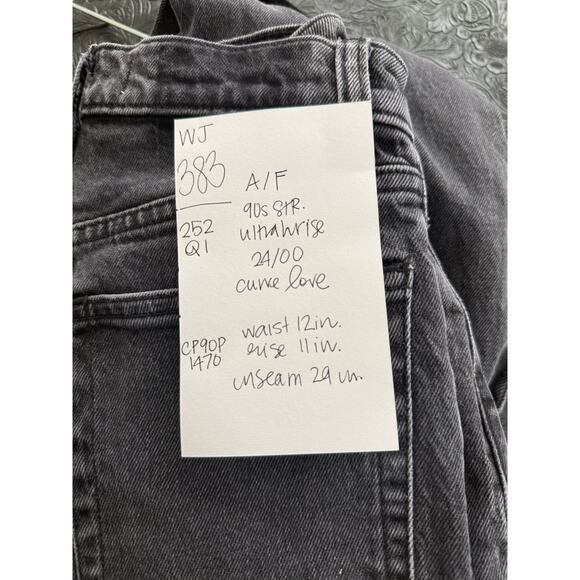 WJ
383
252
Q1
CP90P
1470
A/F
90s STR.
ultrahrise
24/00
curve love
waist 12in.
rise 11in.
inseam 29 in.